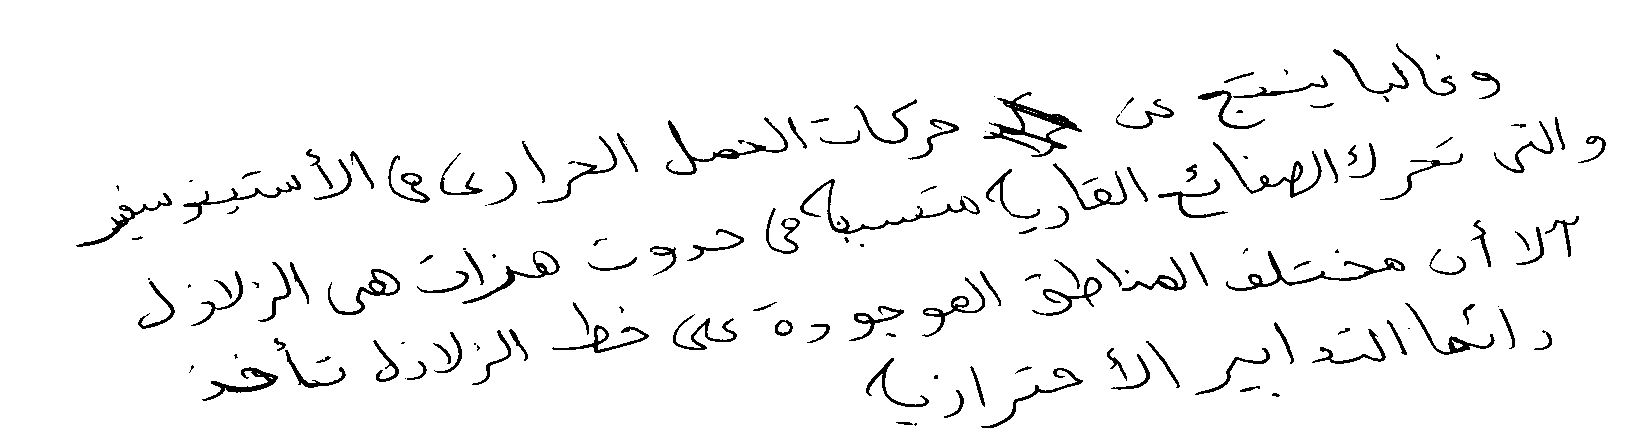 وغالبا ينتج عن حركات الحمل الحرارى فى الأستينوسفير
والتى تحرك الصفائح القاريه متسببه فى حدوث هزات هى الزلازل
آلا أن مختلف المناطق الموجودة على خط الزلازل تأخذ
دائما التدابير الأحترازيه